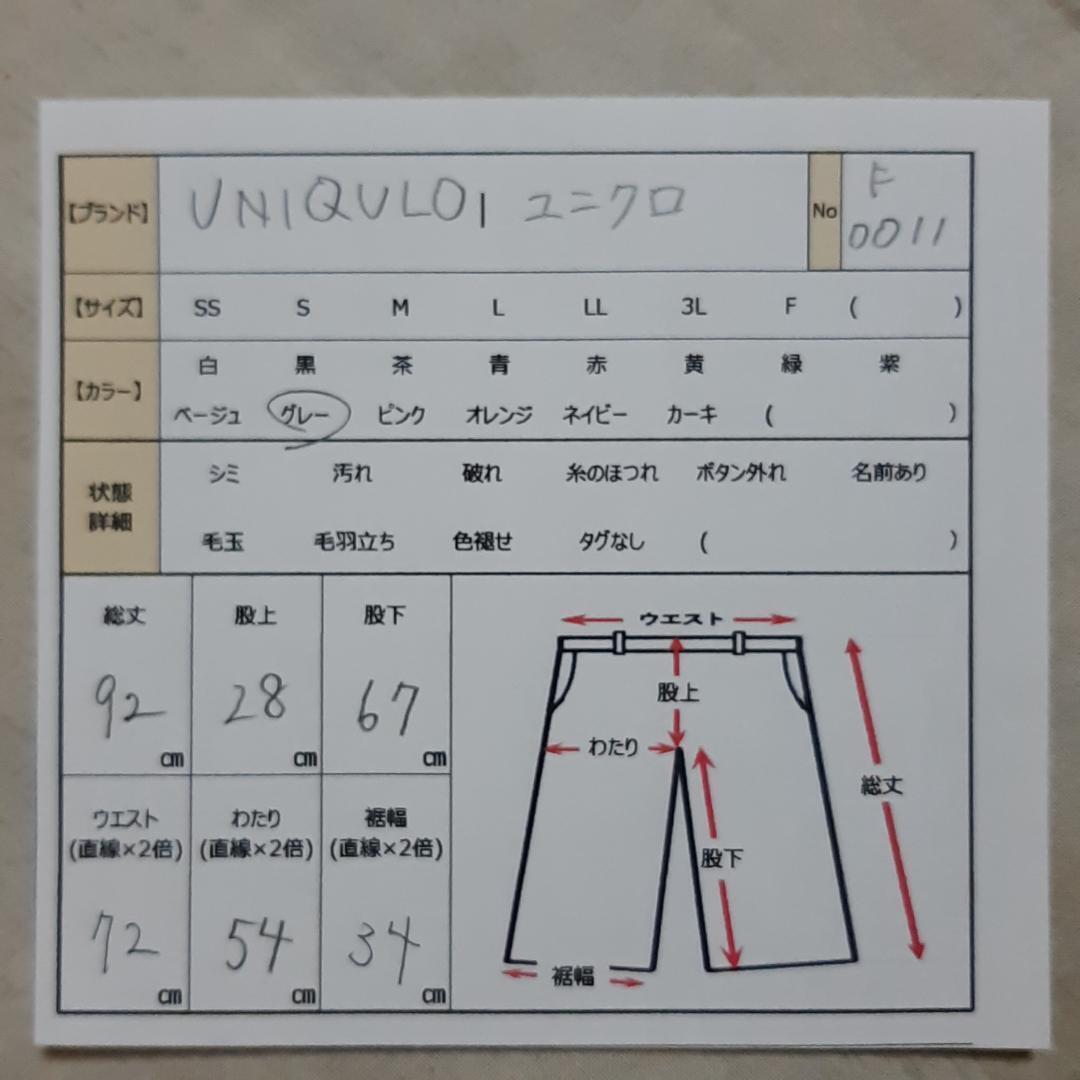 【ブランド】 UNIQULO, ユニクロ No F
0011
【サイズ】 SS S M L LL 3L F ( )
【カラー】 白 黒 茶 青 赤 黄 緑 紫
ベージュ グレー ピンク オレンジ ネイビー カーキ ( )
状態
詳細
シミ 汚れ 破れ 糸のほつれ ボタン外れ 名前あり
毛玉 毛羽立ち 色褪せ タグなし ( )
総丈 股上 股下
92 cm 28 cm 67 cm
ウエスト わたり 裾幅
(直線×2倍) (直線×2倍) (直線×2倍)
72 cm 54 cm 34 cm
ウエスト
股上
わたり
総丈
股下
裾幅